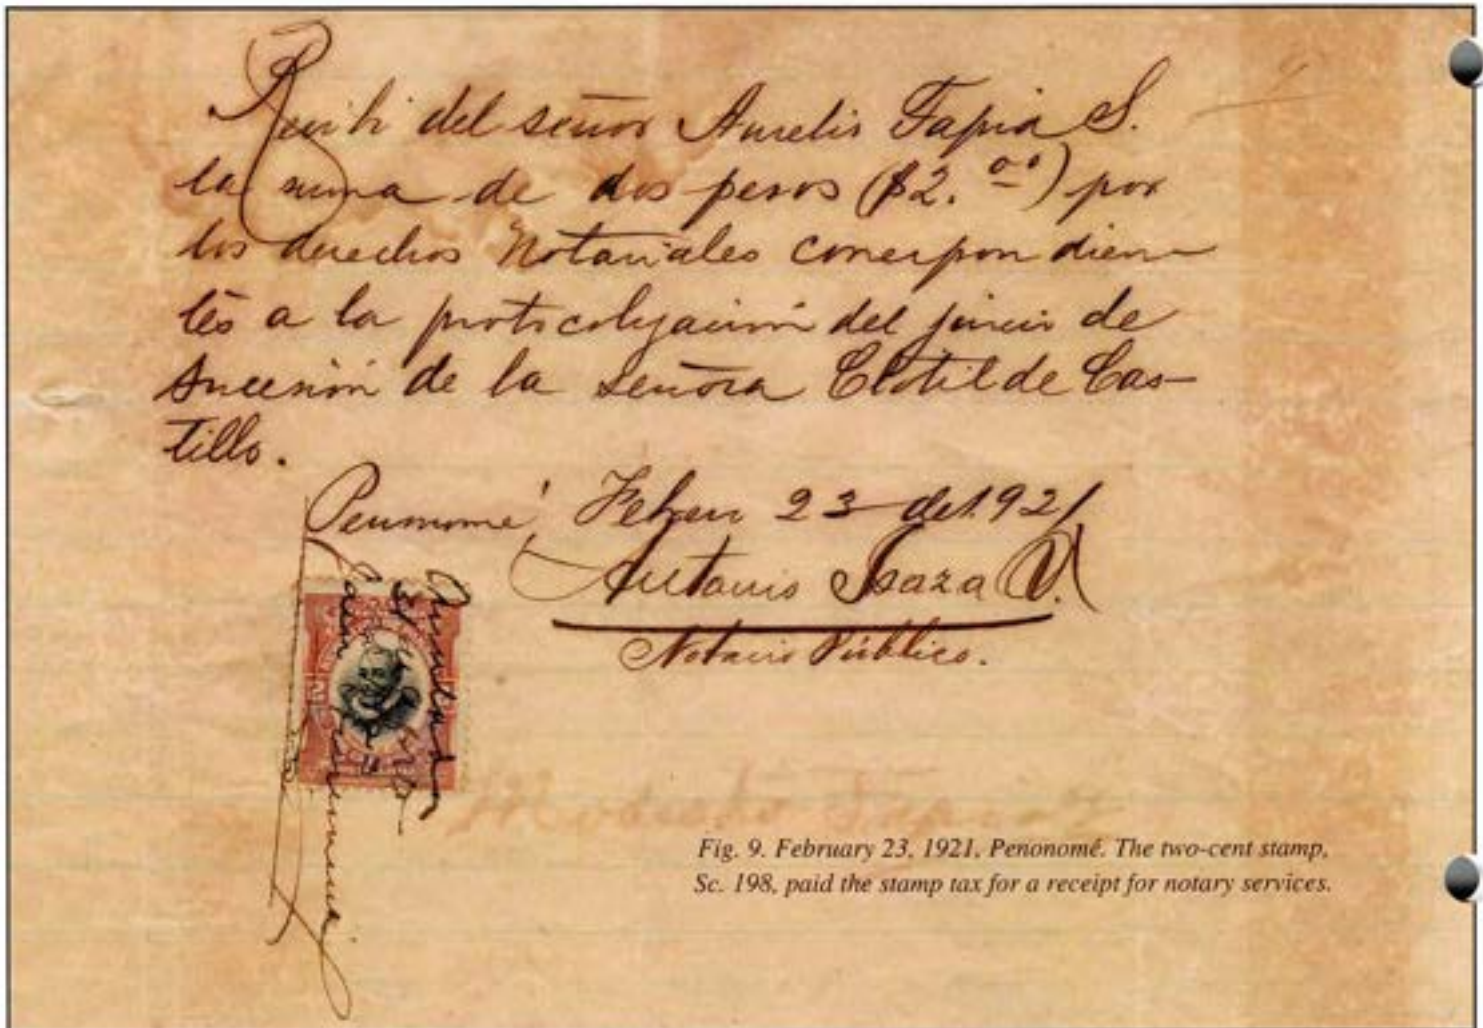 Recibí del señor Aurelio Tapia S.
la suma de dos pesos ($2.00) por
los derechos Notariales correspondien-
tes a la protocolización del juicio de
sucesión de la señora Clotilde Cas-
tillo.
Penonomé, Febero 23 de 1921
Antonio Isaza V.
Notario Público.
Anulada
Modesto Tapia
Fig. 9. February 23, 1921, Penonomé. The two-cent stamp,
Sc. 198, paid the stamp tax for a receipt for notary services.